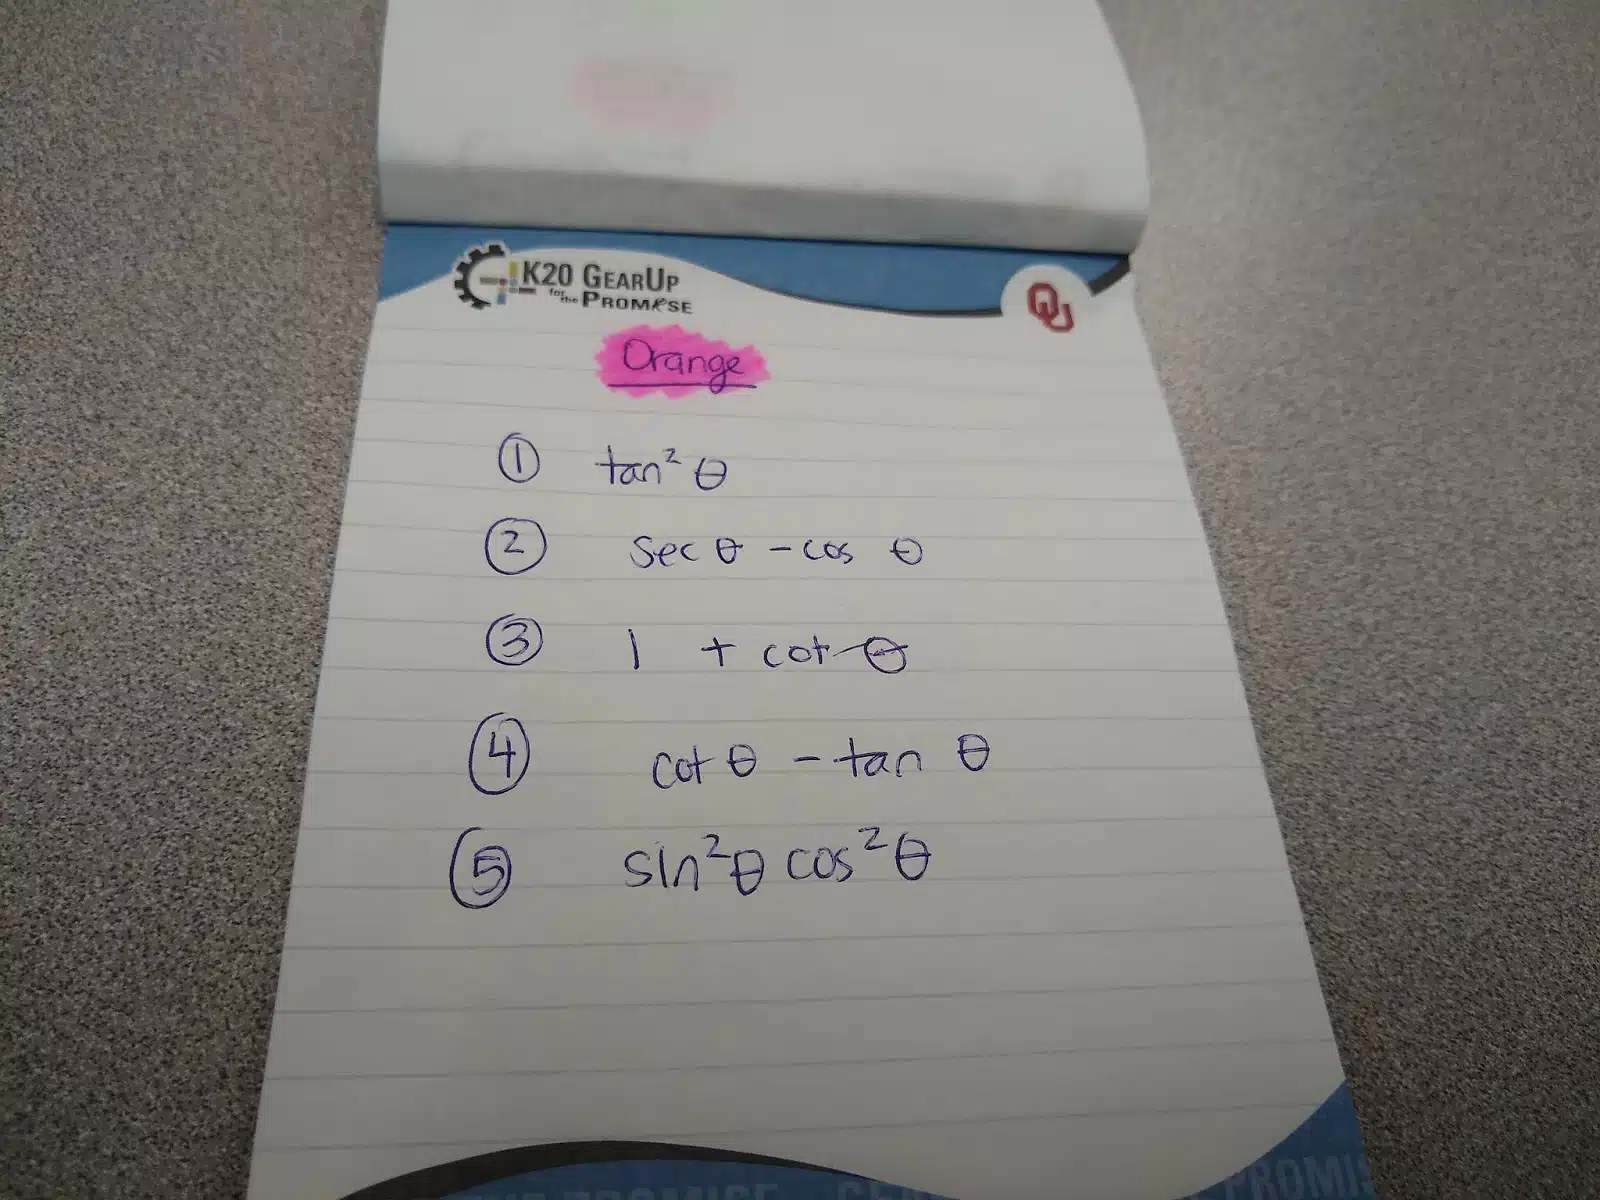 K20 GEARUP
for the PROMISE
OU
Orange
① tan² θ
② sec θ - cos θ
③ 1 + cot θ
④ cot θ - tan θ
⑤ sin²θ cos²θ
PROMISE GEA PROMIS